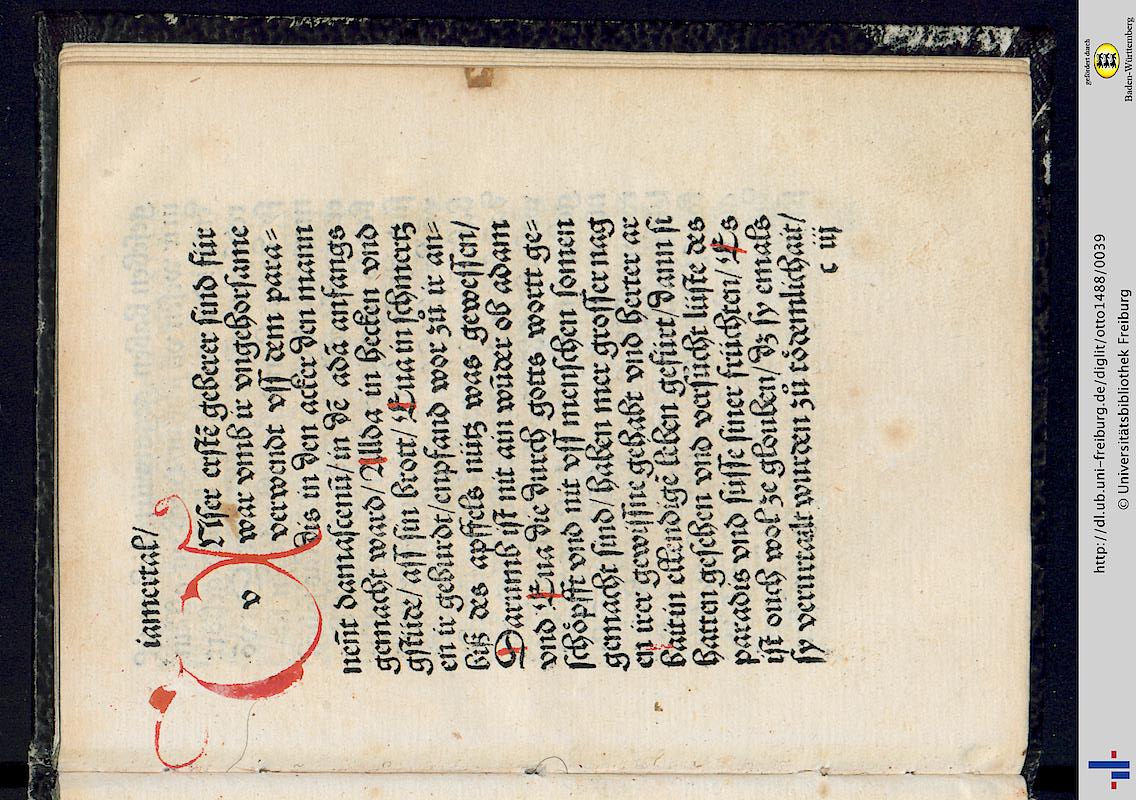 iamertal/
Vnser erstē geberer sind für
war vmb ir vngehorsame
verwendt vsß dem para=
dis in den acker den mann
nen̄t damascenū/in dē adā anfangs
gemacht ward/Allda in hecken vnd
gstüde/ass sin brott/Eua in schmertz
en ir gebürdt/enpfand wor zů ir an=
biß des apffels nütz was gewessen/
Darumb ist nit ain wūder ob adam
vnd Eua die durch gotts wortt ge=
schöpfft vnd nit vsß menschen somen
gemacht sind/haben mer grosser nag
en irer gewissne gehabt vnd herter ar
baitin ellendigē leben gefürt/dann si
hatten gesehen vnd versücht lüste des
paradis vnd süsse siner früchten/Es
ist ouch wol ze glouben/dz sy emals
sy verurtailt wurden zů tödemlichait/
c iij
v
gefördert durch
Baden-Württemberg
http://dl.ub.uni-freiburg.de/diglit/otto1488/0039
© Universitätsbibliothek Freiburg